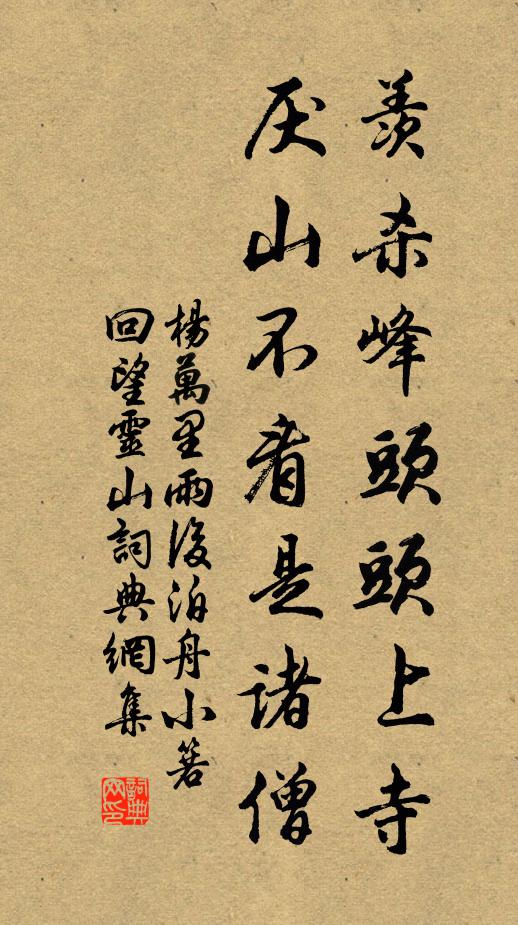 羨杀峰頭頭上寺
厌山不看是諸僧
楊萬里雨後泊舟小箬
回望靈山詞典網集
詞典网印